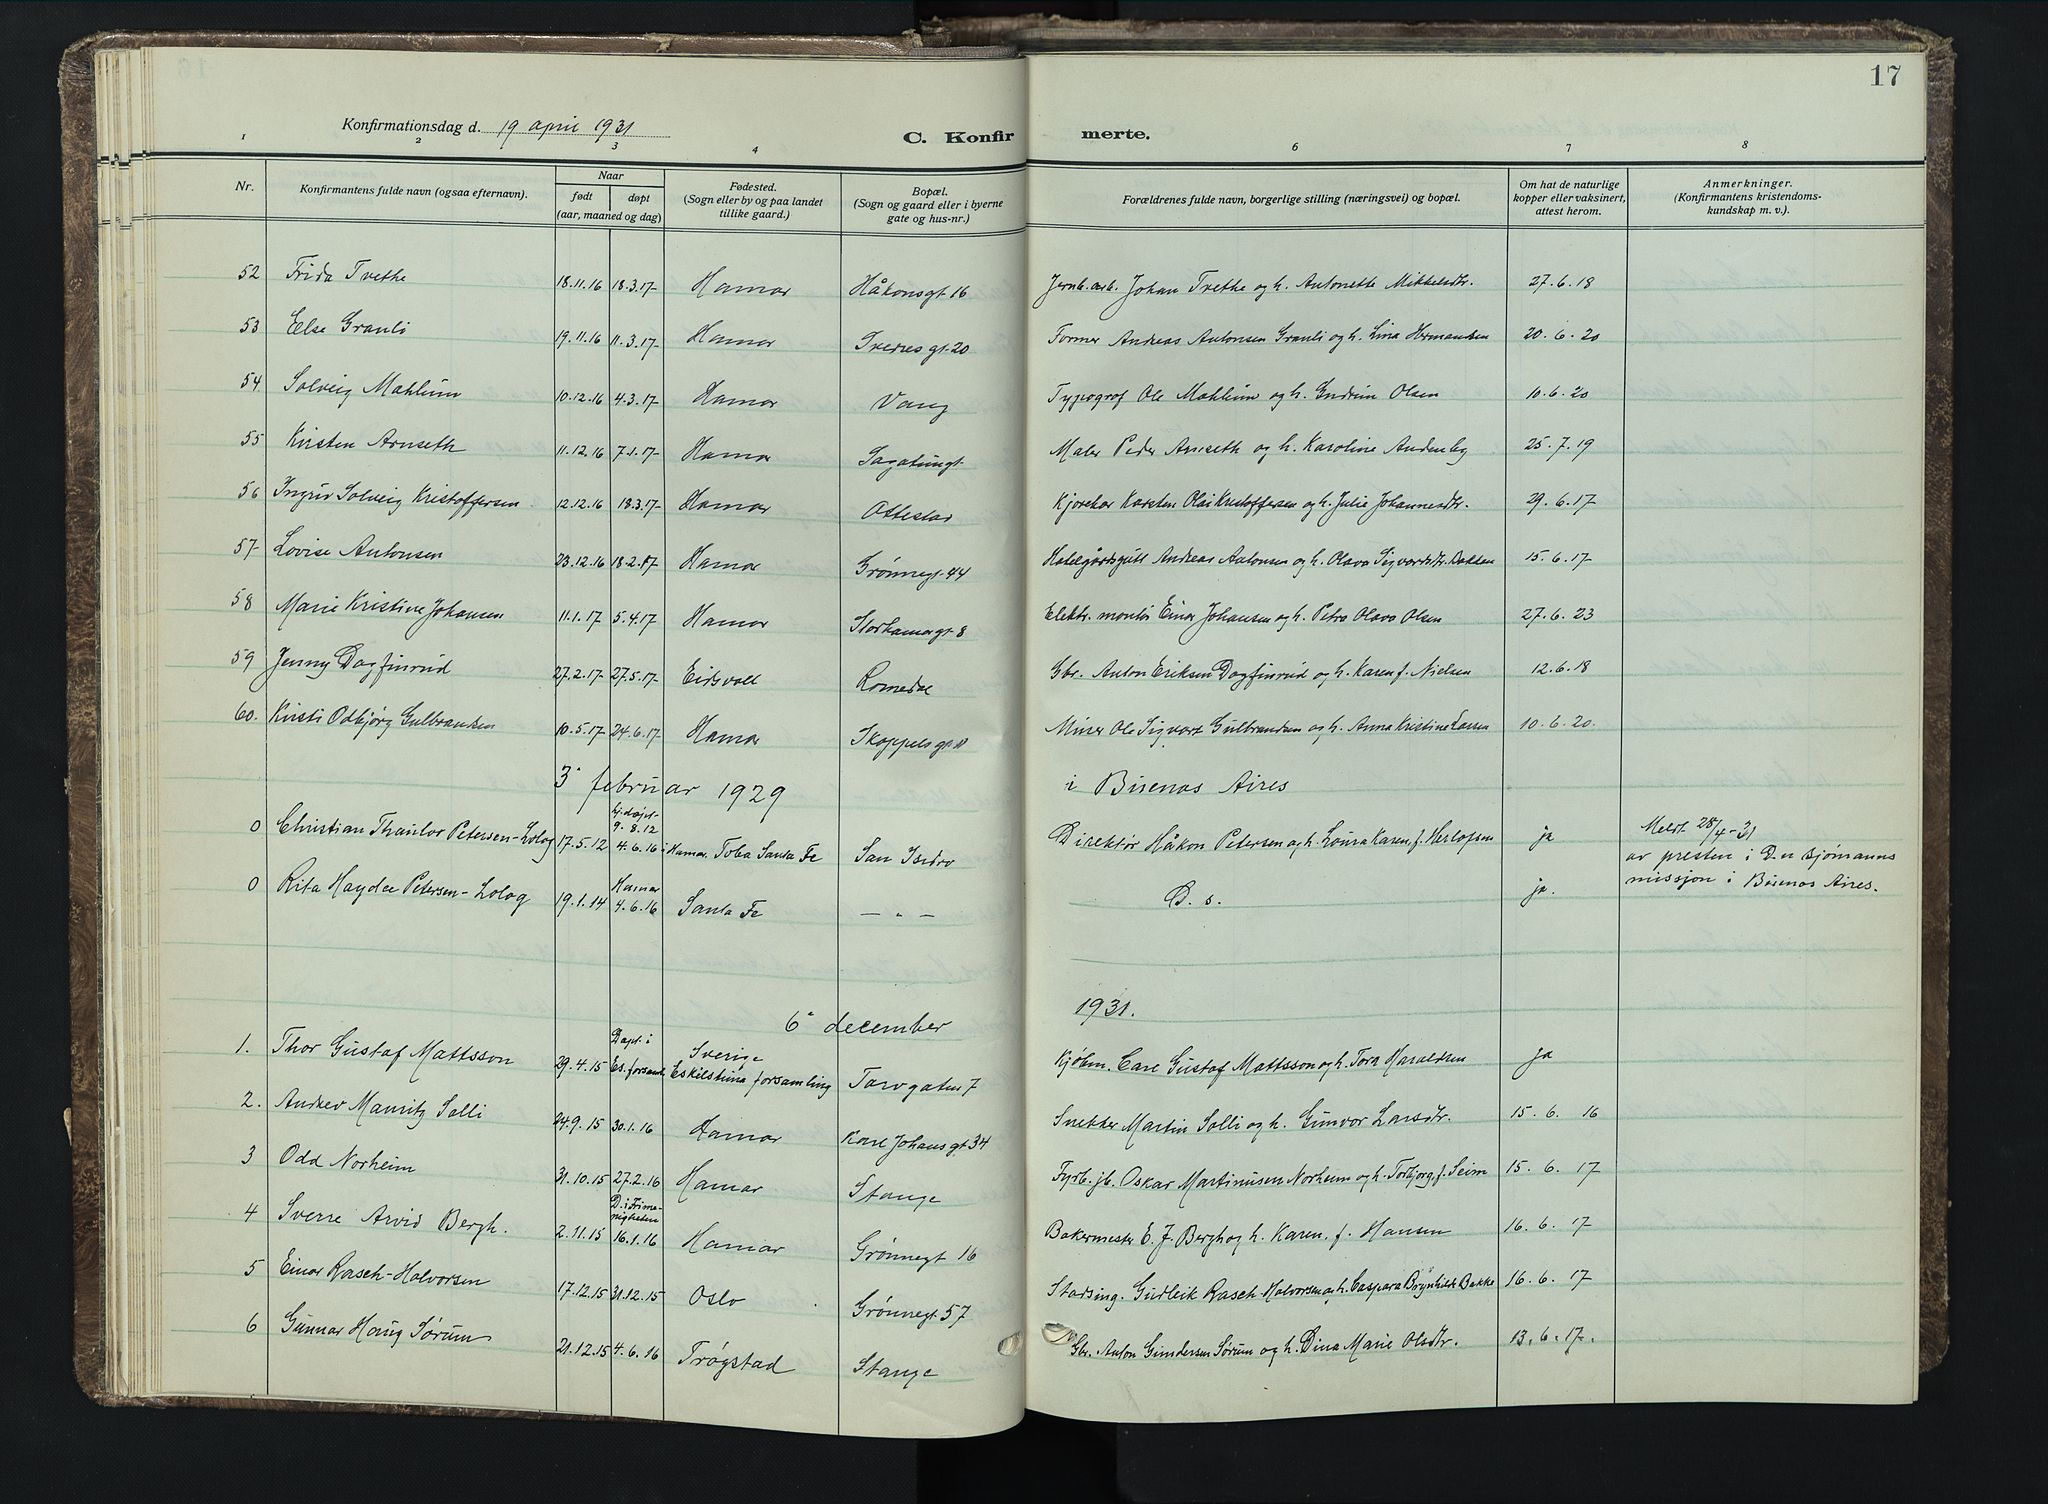 17
Konfirmationsdag d. 19 april 1931
C. Konfirmerte.
1 2 3 4 6 7 8
Nr.
Konfirmantens fulde navn (ogsaa efternavn).
Naar
født døpt
(aar, maaned og dag)
Fødested.
(Sogn eller by og paa landet
tillike gaard.)
Bopæl.
(Sogn og gaard eller i byerne
gate og hus-nr.)
Forældrenes fulde navn, borgerlige stilling (næringsvei) og bopæl.
Om hat de naturlige
kopper eller vaksinert,
attest herom.
Anmerkninger.
(Konfirmantens kristendoms-
kundskap m. v.).
52 Frida Tvethe 18.11.16 18.3.17 Hamar Håkonsgt 16 Jernb.arb. Johan Tvethe og h. Antonette Mikkelsdtr. 27.6.18
53 Else Granli 19.11.16 11.3.17 Hamar Sverresgt. 20 Former Andreas Antonsen Granli og h. Lina Hermansen 20.6.20
54 Solveig Mæhlum 10.12.16 4.3.17 Hamar Vang Typograf Ole Mæhlum og h. Gudrun Olsen 10.6.20
55 Kristen Arnseth 11.12.16 7.1.17 Hamar Sagatungt. Maler Peder Arnseth og h. Karoline Andenby 25.7.19
56 Ingrid Solveig Kristoffersen 12.12.16 18.3.17 Hamar Ottestad Kjørekar Karsten Olai Kristoffersen og h. Julie Johannesdtr. 29.6.17
57 Lovise Antonsen 23.12.16 18.2.17 Hamar Grønnegt. 44 Hotelgårdsgutt Andreas Antonsen og h. Olava Sigvardsdtr. Bakken 15.6.17
58 Marie Kristine Johansen 11.1.17 5.4.17 Hamar Storhamargt. 8 Elektr. montør Einar Johansen og h. Petra Olava Olsen 27.6.23
59 Jenny Dagfinrud 27.2.17 27.5.17 Eidsvoll Romedal Gbr. Anton Eriksen Dagfinrud og h. Karen f. Nielsen 12.6.18
60. Kirsti Odbjørg Gulbrandsen 10.5.17 24.6.17 Hamar Skappelsgt. Murer Ole Sigvart Gulbrandsen og h. Anna Kristine Larsen 10.6.20.
3 februar 1929 i Buenos Aires
0 Christian Thaulov Petersen-Lolog 17.5.12 hj.døpt 9.8.12 4.6.16 i Hamar. Toba Santa Fe San Isidro Direktør Håkon Petersen og h. Loura Karen, f. Herlofsen ja Meldt 28/4-31
av presten i D. n. sjømanns
missjon i Buenos Aires.
0 Rita Haydee Petersen-Lolog 19.1.14 Hamar 4.6.16 Santa Fe — " — D. s. ja.
6 december 1931.
1. Thor Gustaf Mattsson 29.4.15 Døpt i Es. forsaml. Sverige Eskilstuna forsamling Torvgaten 7 Kjøbm. Carl Gustaf Mattsson og h. Tora Haraldsen ja
2. Andrev Mauritz Solli 24.9.15 30.1.16 Hamar Karl Johansgt. 34 Snekker Martin Solli og h. Gunvor Larsdtr. 15.6.16
3 Odd Norheim 31.10.15 27.2.16 Hamar Stange Fyrb. jb. Oskar Martinusen Norheim og h. Torbjørg, f. Seim 15.6.17
4 Sverre Arvid Bergh. 2.11.15 D. i Frimenigheten 16.1.16 Hamar Grønnegt 16 Bakermester E. J. Bergh og h. Karen, f. Hansen 16.6.17
5 Einar Rasch-Halvorsen 17.12.15 31.12.15 Oslo Grønnegt 57 Stadsing. Gudleik Rasch-Halvorsen og h. Caspara Brynhilde Bakke 16.6.17
6 Gunnar Haug Sørum 21.12.15 4.6.16 Trøgstad Stange Gbr. Anton Gundersen Sørum og h. Dina Marie Olsdtr. 13.6.17.